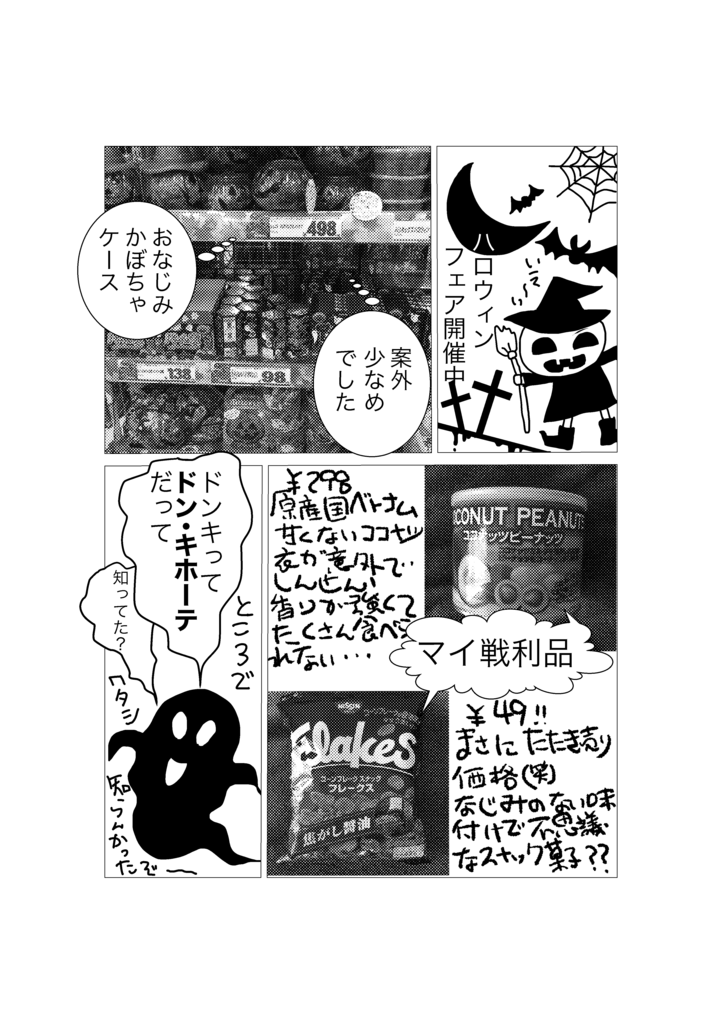 ハロウィン
フェア開催中
案外
少なめ
でした
おなじみ
かぼちゃ
ケース
498
138
98
COCONUT PEANUTS
ココナッツピーナッツ
マイ戦利品
¥298
原産国ベトナム
甘くないココナッツ
衣が意外で‥
しんせん!
香りが強くて
たくさん食べら
れない・・・
NISSIN
Flakes
コーンフレークスナック
フレークス
焦がし醤油
¥49!!
まさにたたき売り
価格(笑)
なじみのない味
付けで不思議
なスナック菓子??
ところで
ドンキって
ドン・キホーテ
だって
知ってた?
ワタシ
知らんかったぞ〜